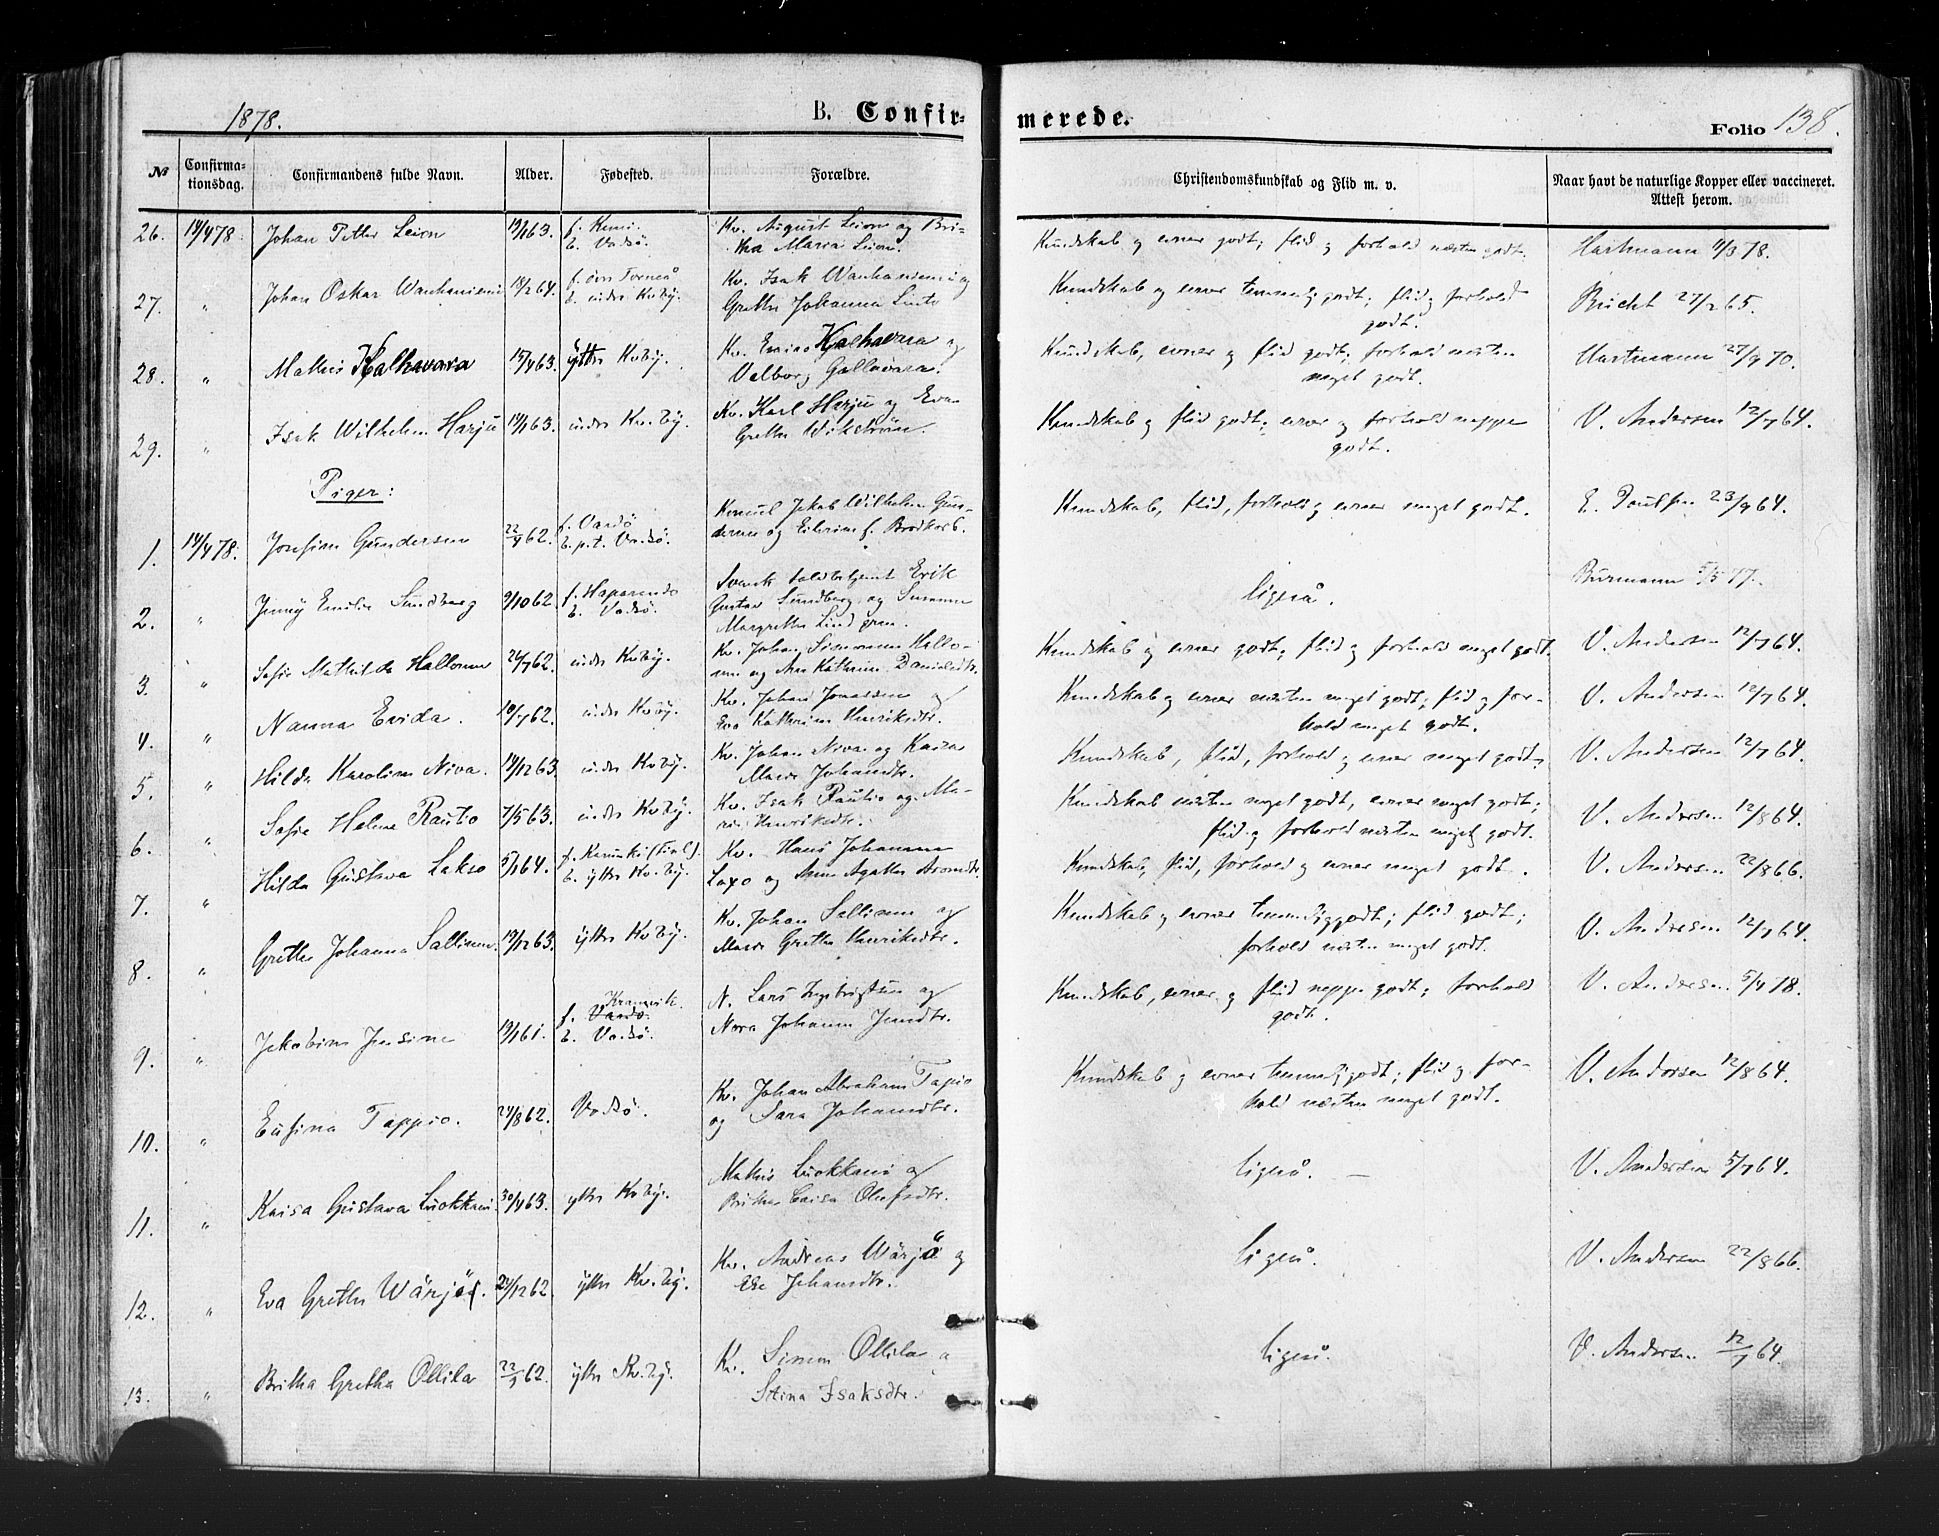 1878.
B. Confir-
merede.
Folio 138.
№
Confirma-
tionsdag.
Confirmandens fulde Navn.
Alder.
Fødested.
Forældre.
Christendomskundskab og Flid m. v.
Naar havt de naturlige Kopper eller vaccineret.
Attest herom.
26. 14/4 78. Johan Petter Leion f. Kemi. Kv. August Leion og Bri-
b. Vadsö. tha Maria Leion.
Kundskab og evner godt; flid og forhold næsten godt. Hartmann 11/3 78.
27. " Johan Oskar Wanhaniemi 14/2 64. f. övre Torneå Kv. Isak Wanhaniemi og
b. indre Kvby. Grethe Johanna
Kundskab og evner temmelig godt; flid og forhold
godt. Bucht 27/2 65.
28. " Mathis Kalhavara 15/4 63. Ytter Kvby. Kv. Kalhavara og
Valborg Gallavara.
Kundskab, evner og flid godt; forhold næsten
meget godt. Hartmann 27/9 70.
29. " Isak Wilhelm Harju 14/1 63. indre Kv.by. Kv. Karl Harju og Eva
Grethe Wikström.
Kundskab og flid godt; evner og forhold neppe
godt. V. Andersen 12/7 64.
Piger:
1. 14/4 78. Josefine Gundersen 22/9 62. f. Vardö Konsul Jakob Wilhelm Gun-
b. p.t. Vadsö. dersen og f. Brodkorb.
Kundskab, flid, forhold og evner meget godt. E. Poulsen 23/9 64.
2. " Jenny Emilie Sundberg 9/10 62. f. Haparanda Svensk Erik
b. Vadsö. Gustav Sundberg og Susanna
Margrethe Lindgren.
ligeså. Burmann 5/5 77.
3. " Sofie Mathilde Hallonen 24/7 62. indre Kvby. Kv. Johan Simonsen Hallo-
nen og Ane Kathrine Danielsdtr.
Kundskab og evner godt; flid og forhold meget godt. V. Andersen 12/7 64.
4. " Nanna Evida. 10/7 62. indre Kvby. Kv. Johan Jonassen og
Eva Kathrine Henriksdtr.
Kundskab og evner næsten meget godt; flid og for-
hold meget godt. V. Andersen 12/7 64.
5. " Hilda Karoline Niva. 14/12 63. indre Kvby. Kv. Johan Niva og Kaisa
Maria Johansdtr.
Kundskab, flid, forhold og evner meget godt. V. Andersen 12/7 64.
6. " Sofie Helene Rautio 7/5 63. indre Kvby. Kv. Isak Rautio og Ma-
ria Henriksdtr.
Kundskab næsten meget godt, evner meget godt;
flid og forhold næsten meget godt. V. Andersen 12/8 64.
7. " Hilda Gustava Lakso 5/1 64. f. Karunki (Finl.) Kv. Hans Johannes
b. ytter Kv.by. Laxo og Anna Agathe Aronsdtr.
Kundskab, flid, forhold og evner meget godt. V. Andersen 22/8 66.
8. " Grethe Johanna Sallinen. 19/12 63. ytter Kvby. Kv. Johan Sallinen og
Maria Grethe Henriksdtr.
Kundskab og evner temmelig godt; flid godt;
forhold næsten meget godt. V. Andersen 12/7 64.
9. " Jakobine Jensine 19/1 61. f. Vardö. Kramvik. N. Lars Ingebrigtsen og
b. Vadsö. Nora Johanne Jensdtr.
Kundskab, evner og flid neppe godt; forhold
godt. V. Andersen 5/4 78.
10. " Eufina Tappio. 27/8 62. Vadsö. Kv. Johan Abraham Tapio
og Sara Johansdtr.
Kundskab og evner temmelig godt; flid og for-
hold næsten meget godt. V. Andersen 12/8 64.
11. " Kaisa Gustava Luokkani 30/4 63. ytter Kvby. Mathis Luokkani og
Britha Caisa Olufsdtr.
ligeså. V. Andersen 5/7 64.
12. " Eva Grethe Wärjö. 24/12 62. ytter Kv.by. Kv. Andreas Wärjö og
Else Johansdtr.
ligeså. V. Andersen 22/8 66.
13. " Britha Gretha Ollila 22/9 62. ytter Kv.by. Kv. Simon Ollila o
Stina Isaksdtr.
ligeså. V. Andersen 12/7 64.